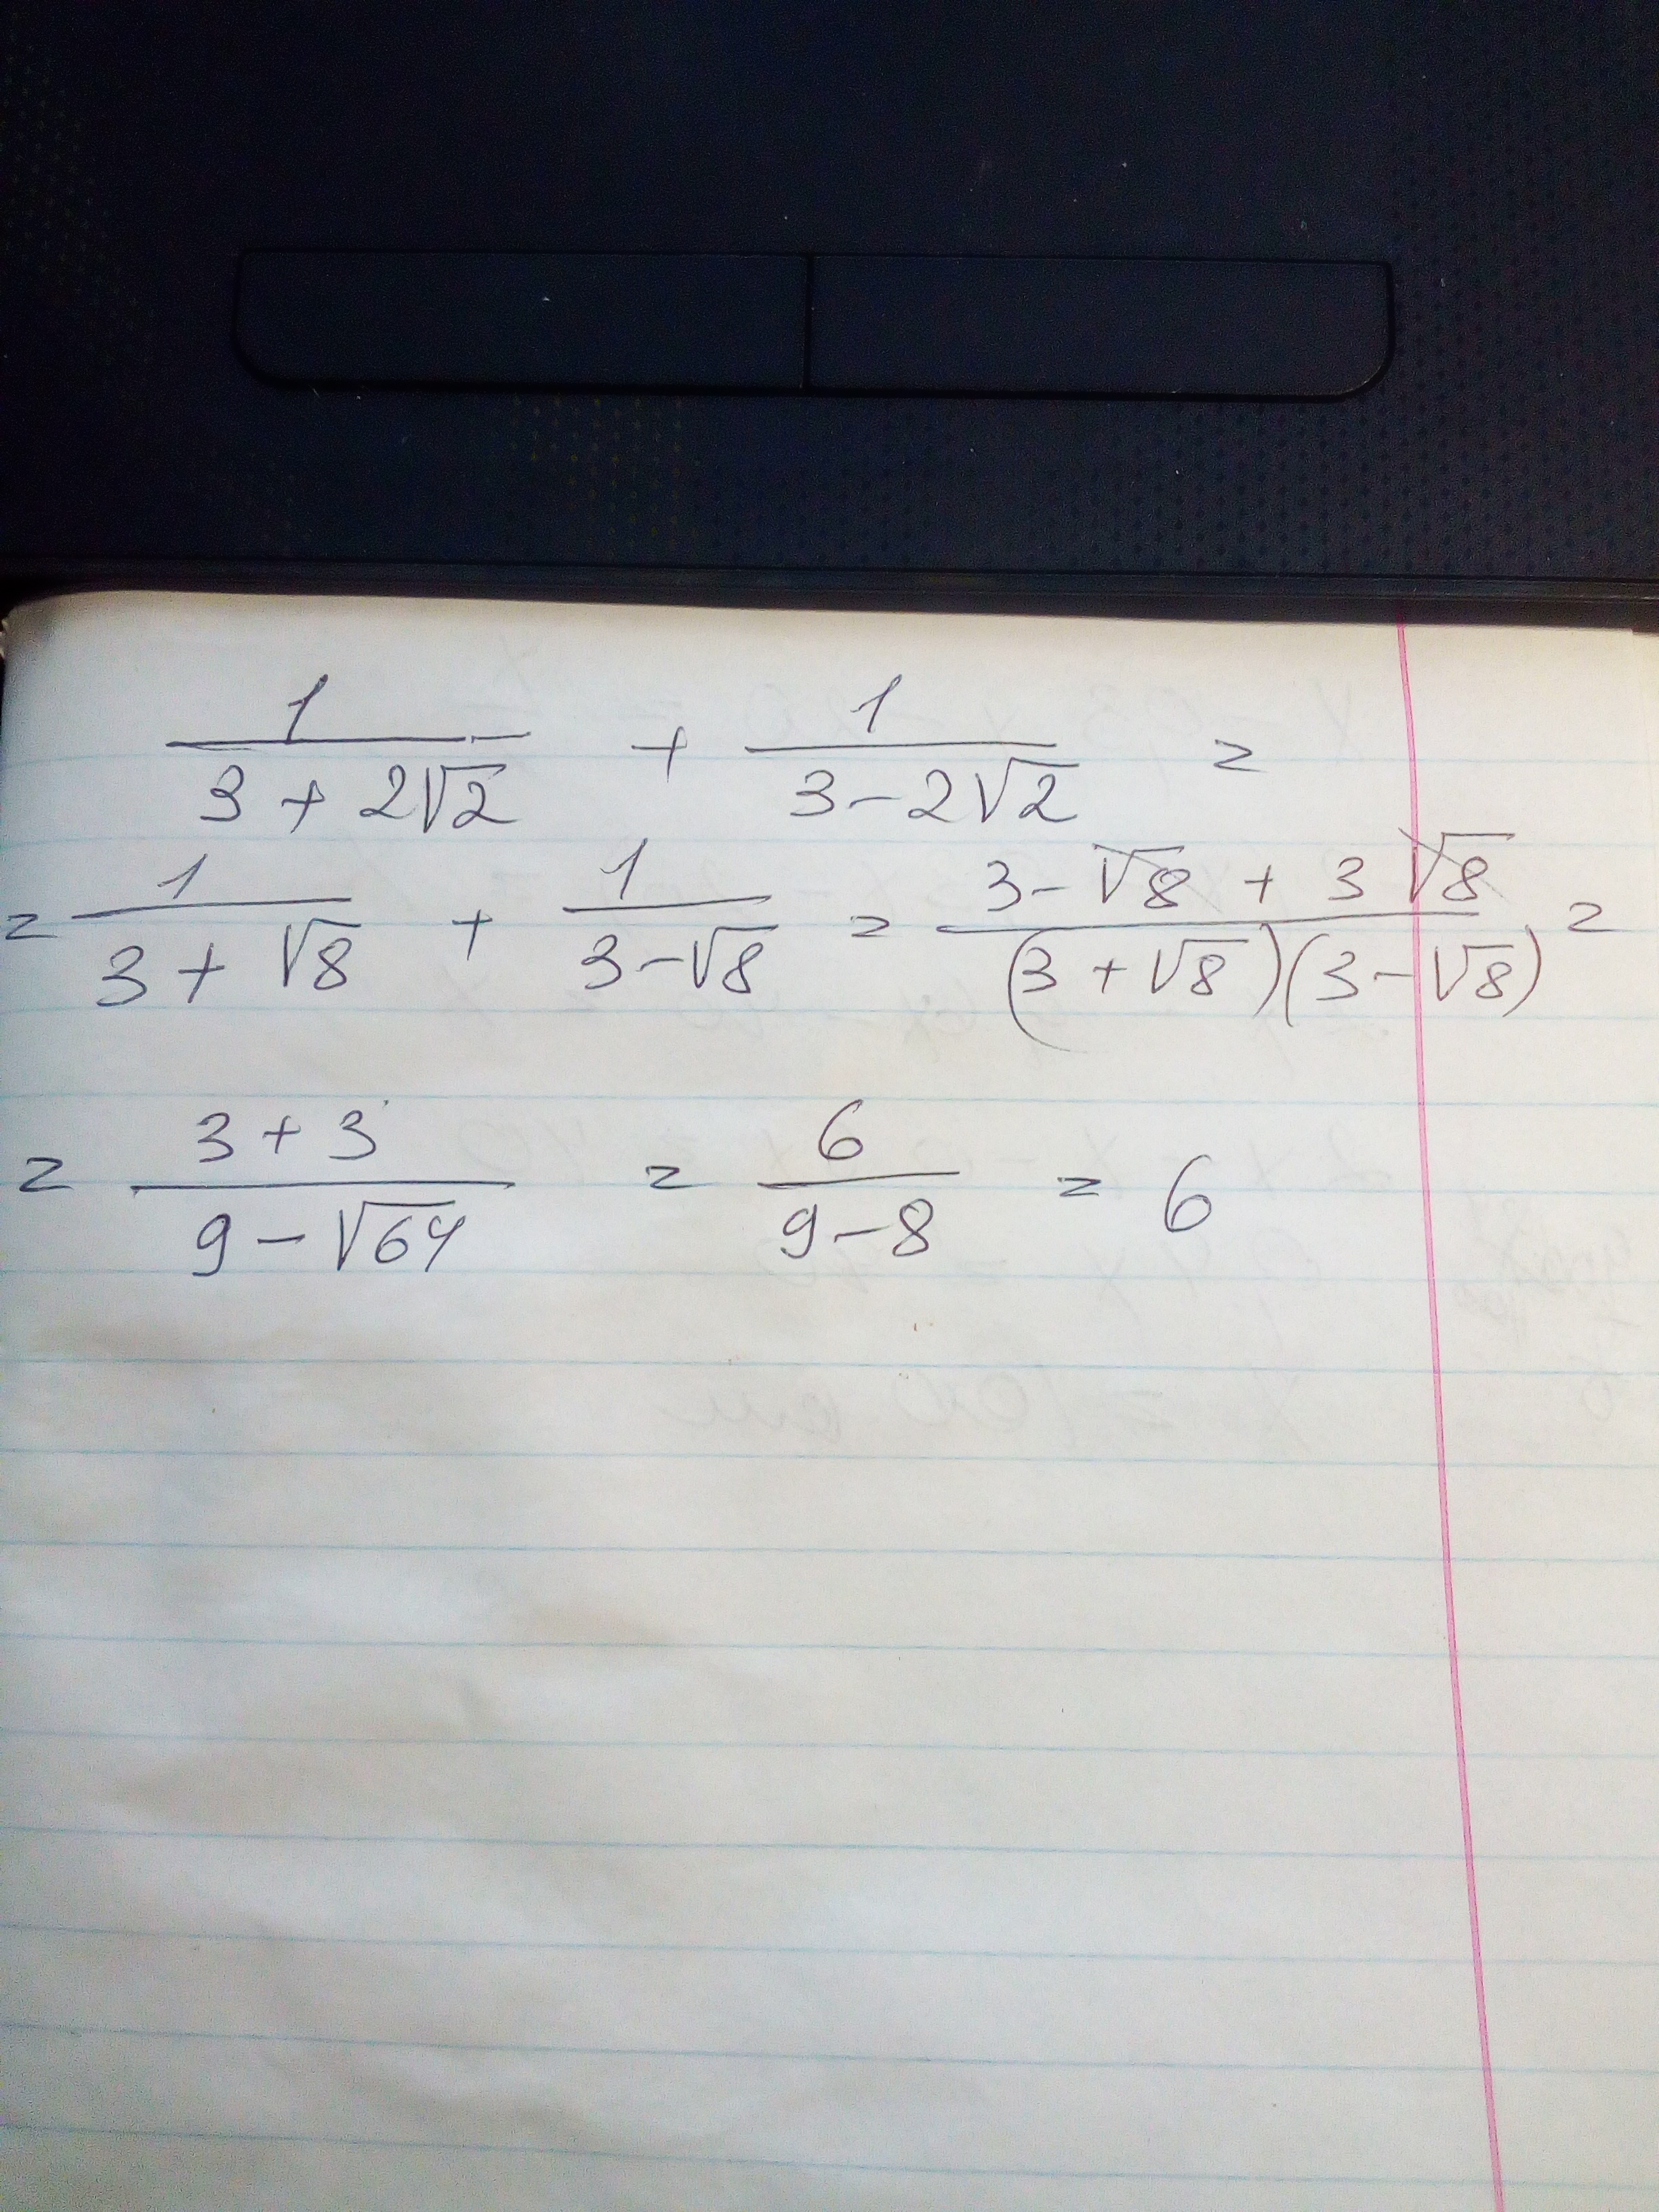 1/(3 + 2√2) + 1/(3 - 2√2) =
= 1/(3 + √8) + 1/(3 - √8) = (3 - √8 + 3 √8)/((3 + √8)(3 - √8)) =
= (3 + 3)/(9 - √64) = 6/(9 - 8) = 6